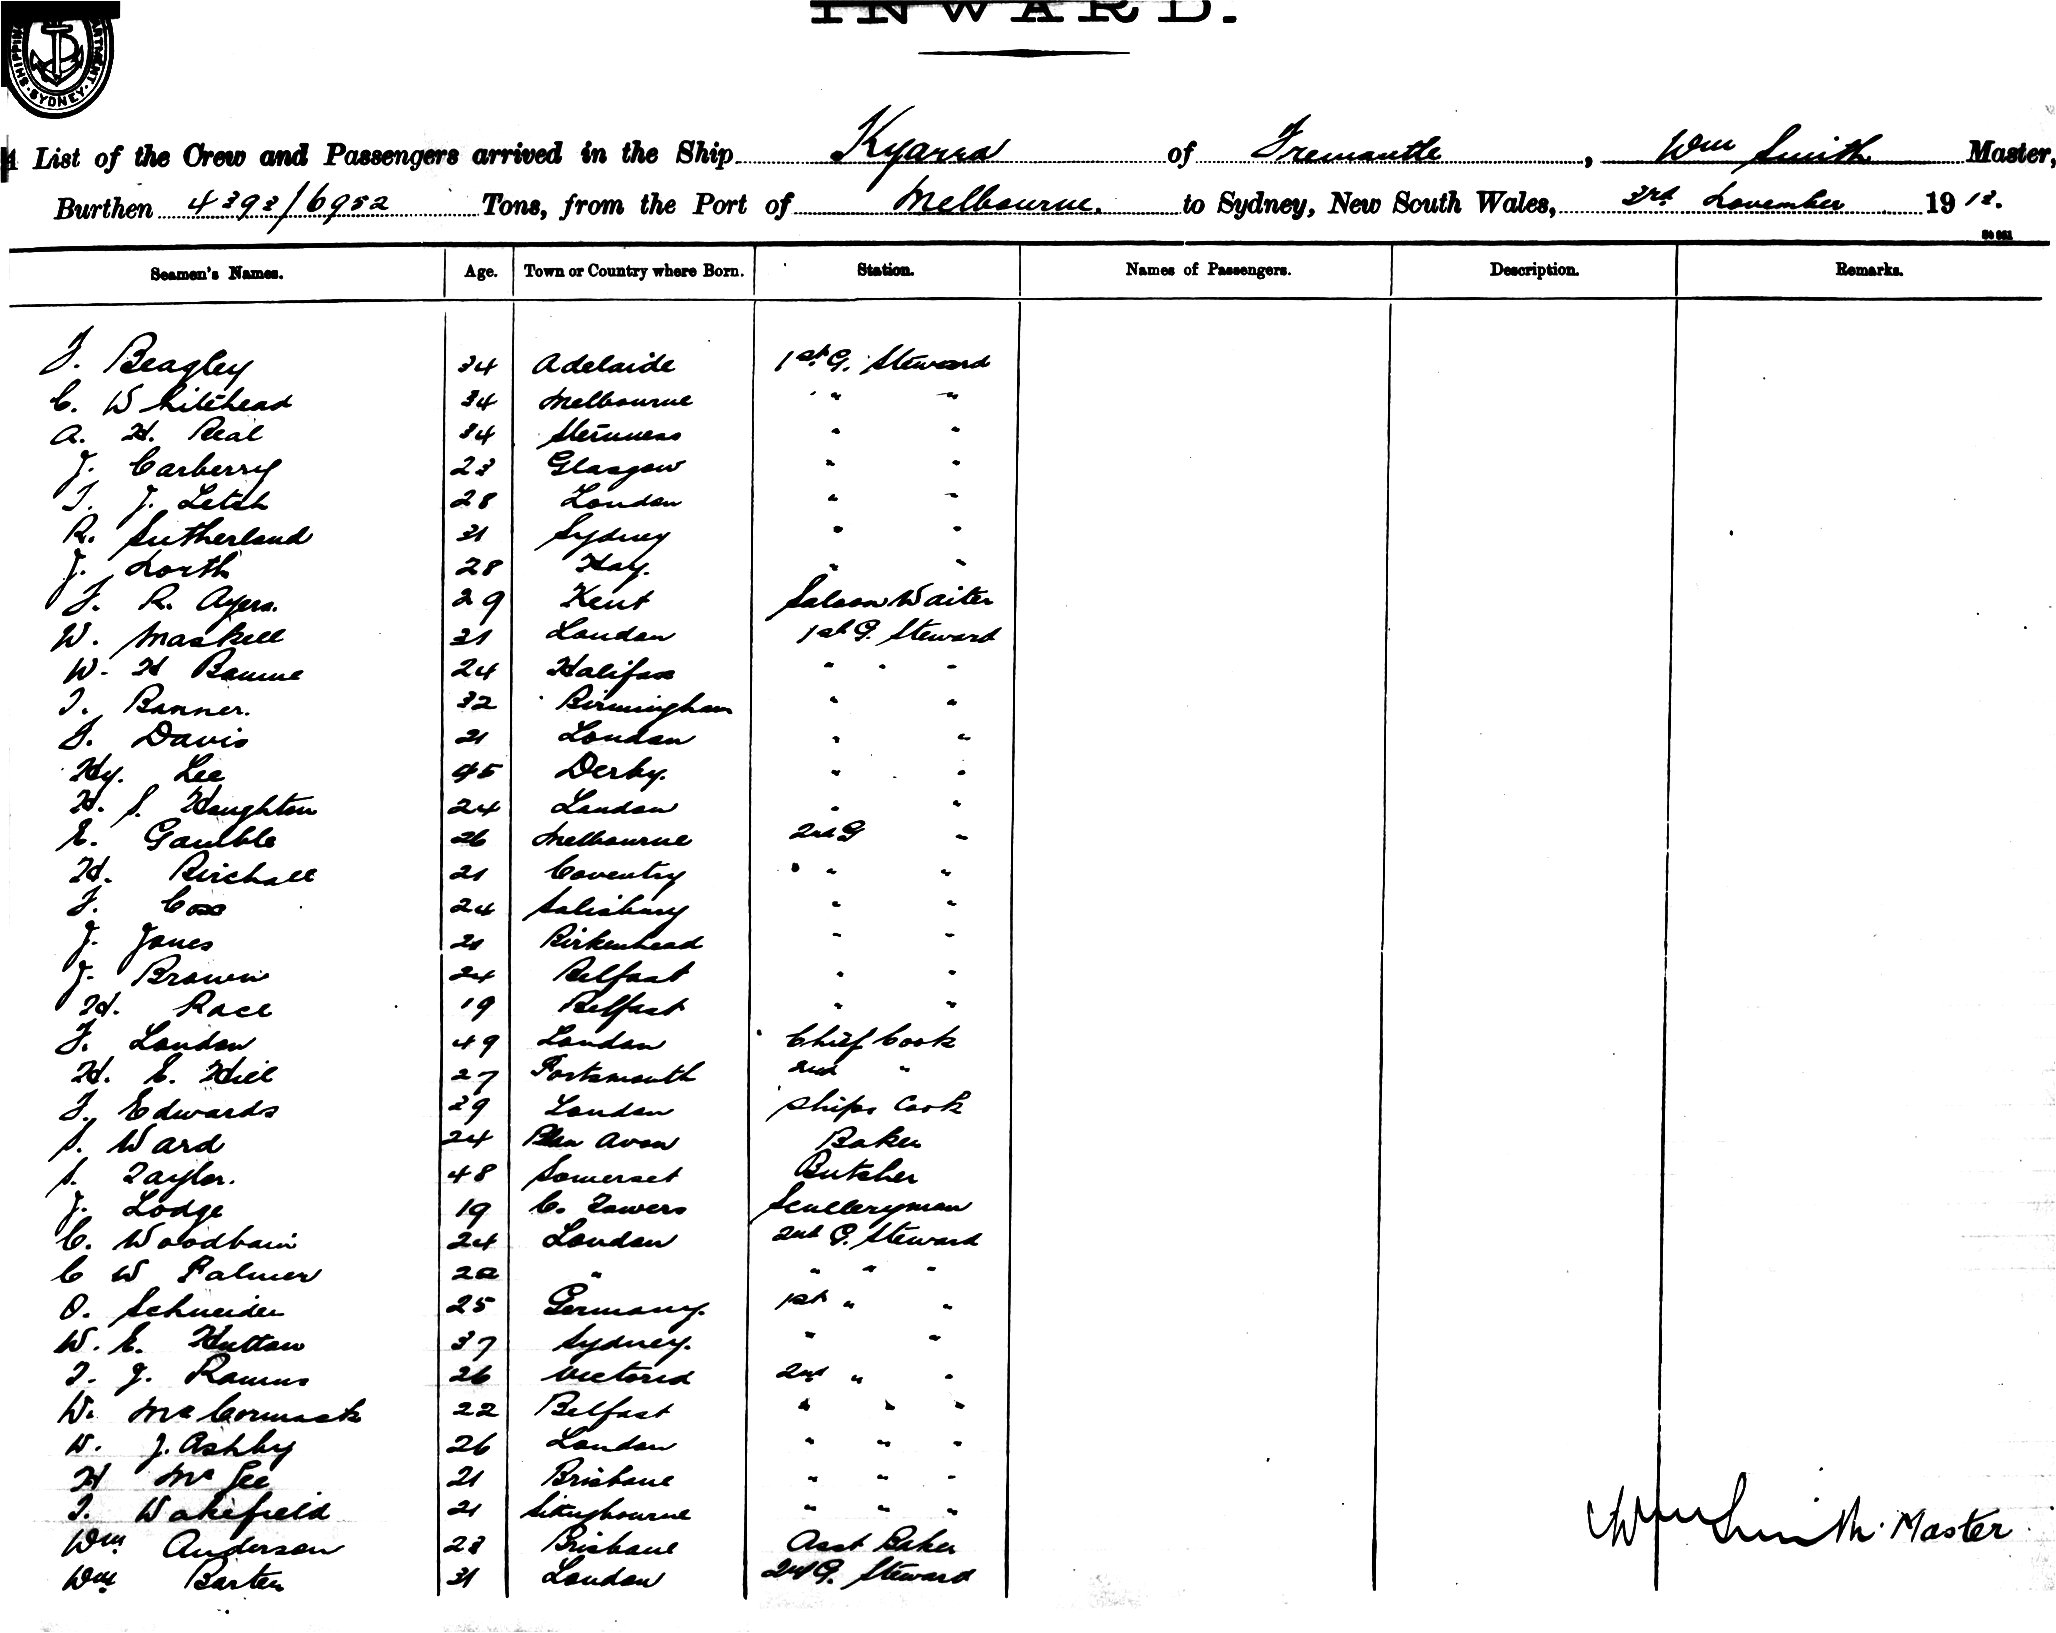 INWARD.
SHIPPING DEPARTMENT SYDNEY
List of the Crew and Passengers arrived in the Ship Kyarra of Fremantle, Wm Smith Master,
Burthen 4393/6952 Tons, from the Port of Melbourne. to Sydney, New South Wales, 3rd November 1913.
Seamen's Names. Age. Town or Country where Born. Station. Names of Passengers. Description. Remarks.
F. Beagley 34 Adelaide 1st G. Steward
C. Whitehead 34 Melbourne " "
A. H. Real 34 " "
J. Carberry 23 Glasgow " "
T. J. Letch 28 London " "
R. Sutherland 31 Sydney " "
J. North 28 Hay. " "
F. R. Ayers. 29 Kent Saloon Waiter
W. Maskell 31 London 1st G. Steward
W. H 24 Halifax " " "
T. Banner. 32 Birmingham " "
F. Davis 21 London " "
Hy. Lee 45 Derby. " "
H. S. Houghton 24 London " "
E. Gamble 26 Melbourne 2nd G "
H. Birchall 21 Coventry " "
F. Cox 24 Salisbury " "
J. Jones 21 Birkenhead " "
J. Brown 24 Belfast " "
H. Race 19 Belfast " "
F. London 49 London Chief Cook
H. E. Hill 27 Portsmouth 2nd "
F. Edwards 29 London Ships Cook
S. Ward 24 Blen Avon Baker
S. Taylor. 48 Somerset Butcher
J. Lodge 19 C. Towers Sculleryman
C. 24 London 2nd G. Steward
C W Palmer 22 " " " "
O. Schneider 25 Germany. 1st " "
W. E. Hutton 37 Sydney. " "
T. J. 26 Victoria 2nd " "
W. McCormack 22 Belfast " " "
W. J. Ashby 26 London " " "
H McGee 21 Brisbane " " "
T. Wakefield 21 Sittingbourne " " "
Wm Anderson 23 Brisbane Asst Baker
Wm Barten 31 London 2nd G. Steward
Wm Smith. Master